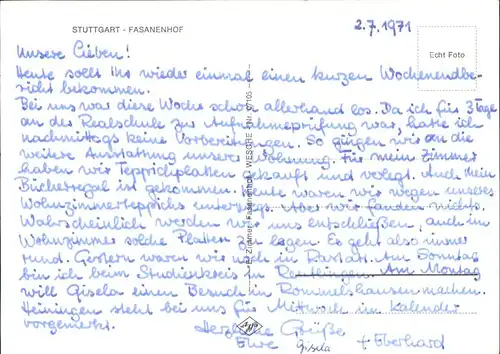 STUTTGART - FASANENHOF
2.7.1971
Echt Foto
Unsere Lieben!
Heute sollt Ihr wieder einmal einen kurzen Wochenendbe-
richt bekommen.
Bei uns war diese Woche schon allerhand los. Da ich für 3 Tage
an der Realschule zur Aufnahmeprüfung war, hatte ich
nachmittags keine Vorbereitungen. So gingen wir an die
weitere Ausstattung unserer Wohnung. Für mein Zimmer
haben wir Teppichplatten gekauft und verlegt. Auch mein
Bücherregal ist gekommen. Heute waren wir wegen unseres
Wohnzimmerteppichs unterwegs. Aber wir fanden nichts.
Wahrscheinlich werden wir uns entschließen, auch im
Wohnzimmer solche Platten zu legen. Es geht also immer
rund. Gestern waren wir noch in Rastatt. Am Sonntag
bin ich beim Studienkreis in Reutlingen. Am Montag
will Gisela einen Besuch in Rommelshausen machen.
Heiningen steht bei uns für Mittwoch im Kalender
vorgemerkt.
Herzliche Grüße
Eure Gisela + Eberhard